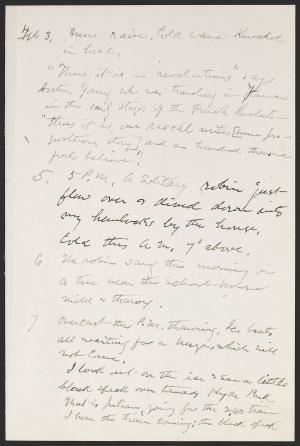 Feb 3, More rain, Cold wave knocked
in head.
"Thus it is in revolutions" says
Arthur Young who was traveling in France
in the early stages of the French Revolution
"thus it is, one rascal writes [some pre-
posterous story] and an hundred thousand
fools believe".
5. 5 P.M. A solitary robin just
flew over or dived down into
my hemlocks by the house,
Cold this A.M. 7° above,
6. The robin sang this morning in
a tree near the school-house
mild & thawy.
7 Overcast this P.M. thawing, Ice boats
all waiting for a breeze, which will
not come,
I look out on the ice & saw a little
black speck over towards Hyde Park
That is Julian, going for the 2,40 train
I hear the train coming; the black speck